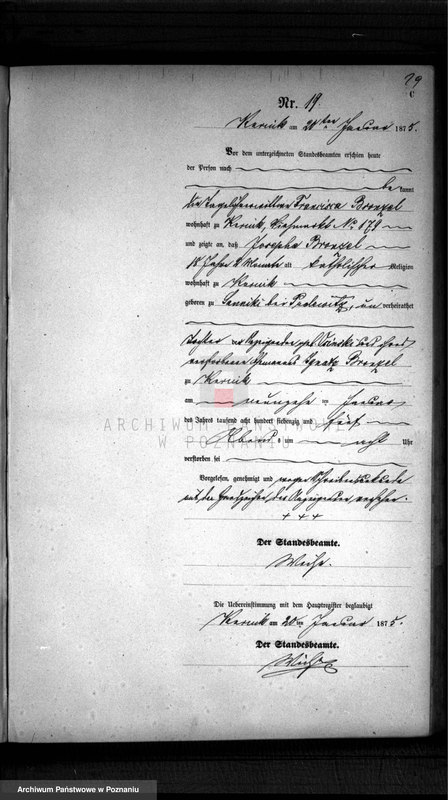 29
C
Nr. 19.
Kurnik am 20ten Januar 1875.
Vor dem unterzeichneten Standesbeamten erschien heute
der Person nach
bekannt
die Francisca Bronzel
wohnhaft zu Kurnik, No 179
und zeigte an, daß Josepha Bronzel
18 Jahre 2 Monate alt katholischer Religion
wohnhaft zu Kurnik
geboren zu bei unverheirathet
Tochter der geb. und ihres
verstorbenen Ignatz Bronzel
zu Kurnik
am neunzehn ten Januar
des Jahres tausend acht hundert siebenzig und fünf
Abends um acht Uhr
verstorben sei
Vorgelesen, genehmigt und wegen
mit den Handzeichen der versehen.
+ + +
Der Standesbeamte.
Weise.
Die Uebereinstimmung mit dem Hauptregister beglaubigt
Kurnik am 20ten Januar 1875.
Der Standesbeamte.
Weise
ARCHIWUM PAŃSTWOWE
W POZNANIU
Archiwum Państwowe w Poznaniu